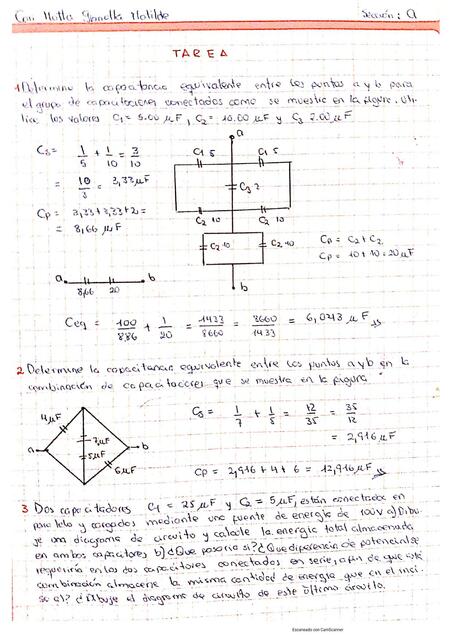 Sección: A
TAREA
1 Determine la capacitancia equivalente entre los puntos a y b para
el grupo de capacitores conectados como se muestra en la figura. Uti-
lice los valores C₁ = 5.00 μF, C₂ = 10.00 μF y C₃ 2.00 μF
a
Cs = 1/5 + 1/10 = 3/10
C₁ 5 C₁ 5
= 10/3 = 3,33 μF
C₃ 2
Cp = 3,33+3,33+2 =
= 8,66 μF
C₂ 10 C₂ 10
C₂ 10 C₂ 10
Cp = C₂ + C₂
Cp = 10 + 10 = 20 μF
b
a b
8,66 20
Ceq = 100/886 + 1/20 = 1433/8660 = 8660/1433 = 6,0433 μF
2 Determine la capacitancia equivalente entre los puntos a y b en la
combinación de capacitores que se muestra en la figura
4 μF
a 7 μF b
5 μF
6 μF
Cs = 1/7 + 1/5 = 12/35 = 35/12
= 2,916 μF
Cp = 2,916 + 4 + 6 = 12,916 μF
3 Dos capacitadores C₁ = 25 μF y C₂ = 5 μF, están conectados en
paralelo y cargados mediante una fuente de energía de 100 V a) Dibu-
je una diagrama de circuito y calcule la energía total almacenada
en ambos capacitores b) ¿Que pasaría si? ¿Que diferencia de potencial se
requeriría en los dos capacitores conectados en serie, a fin de que esta
combinación almacene la misma cantidad de energía que en el inci-
so a? ¿Dibuje el diagrama de circuito de este último circuito.
Escaneado con CamScanner